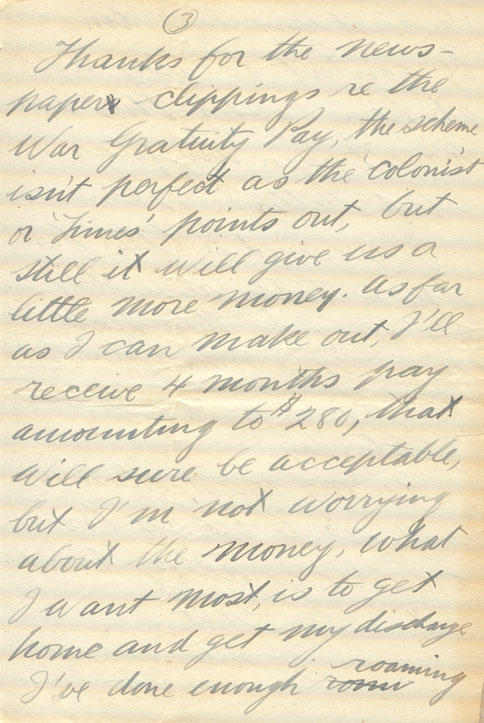 (3)
Thanks for the news-
paper clippings re the
War Gratuity Pay, the scheme
isn't perfect as the 'colonist'
or 'Times' points out, but
still it will give us a
little more money. as far
as I can make out, I'll
receive 4 months pay
amounting to $280, that
will sure be acceptable,
but I'm not worrying
about the money, what
I want most, is to get
home and get my discharge
I've done enough roaming